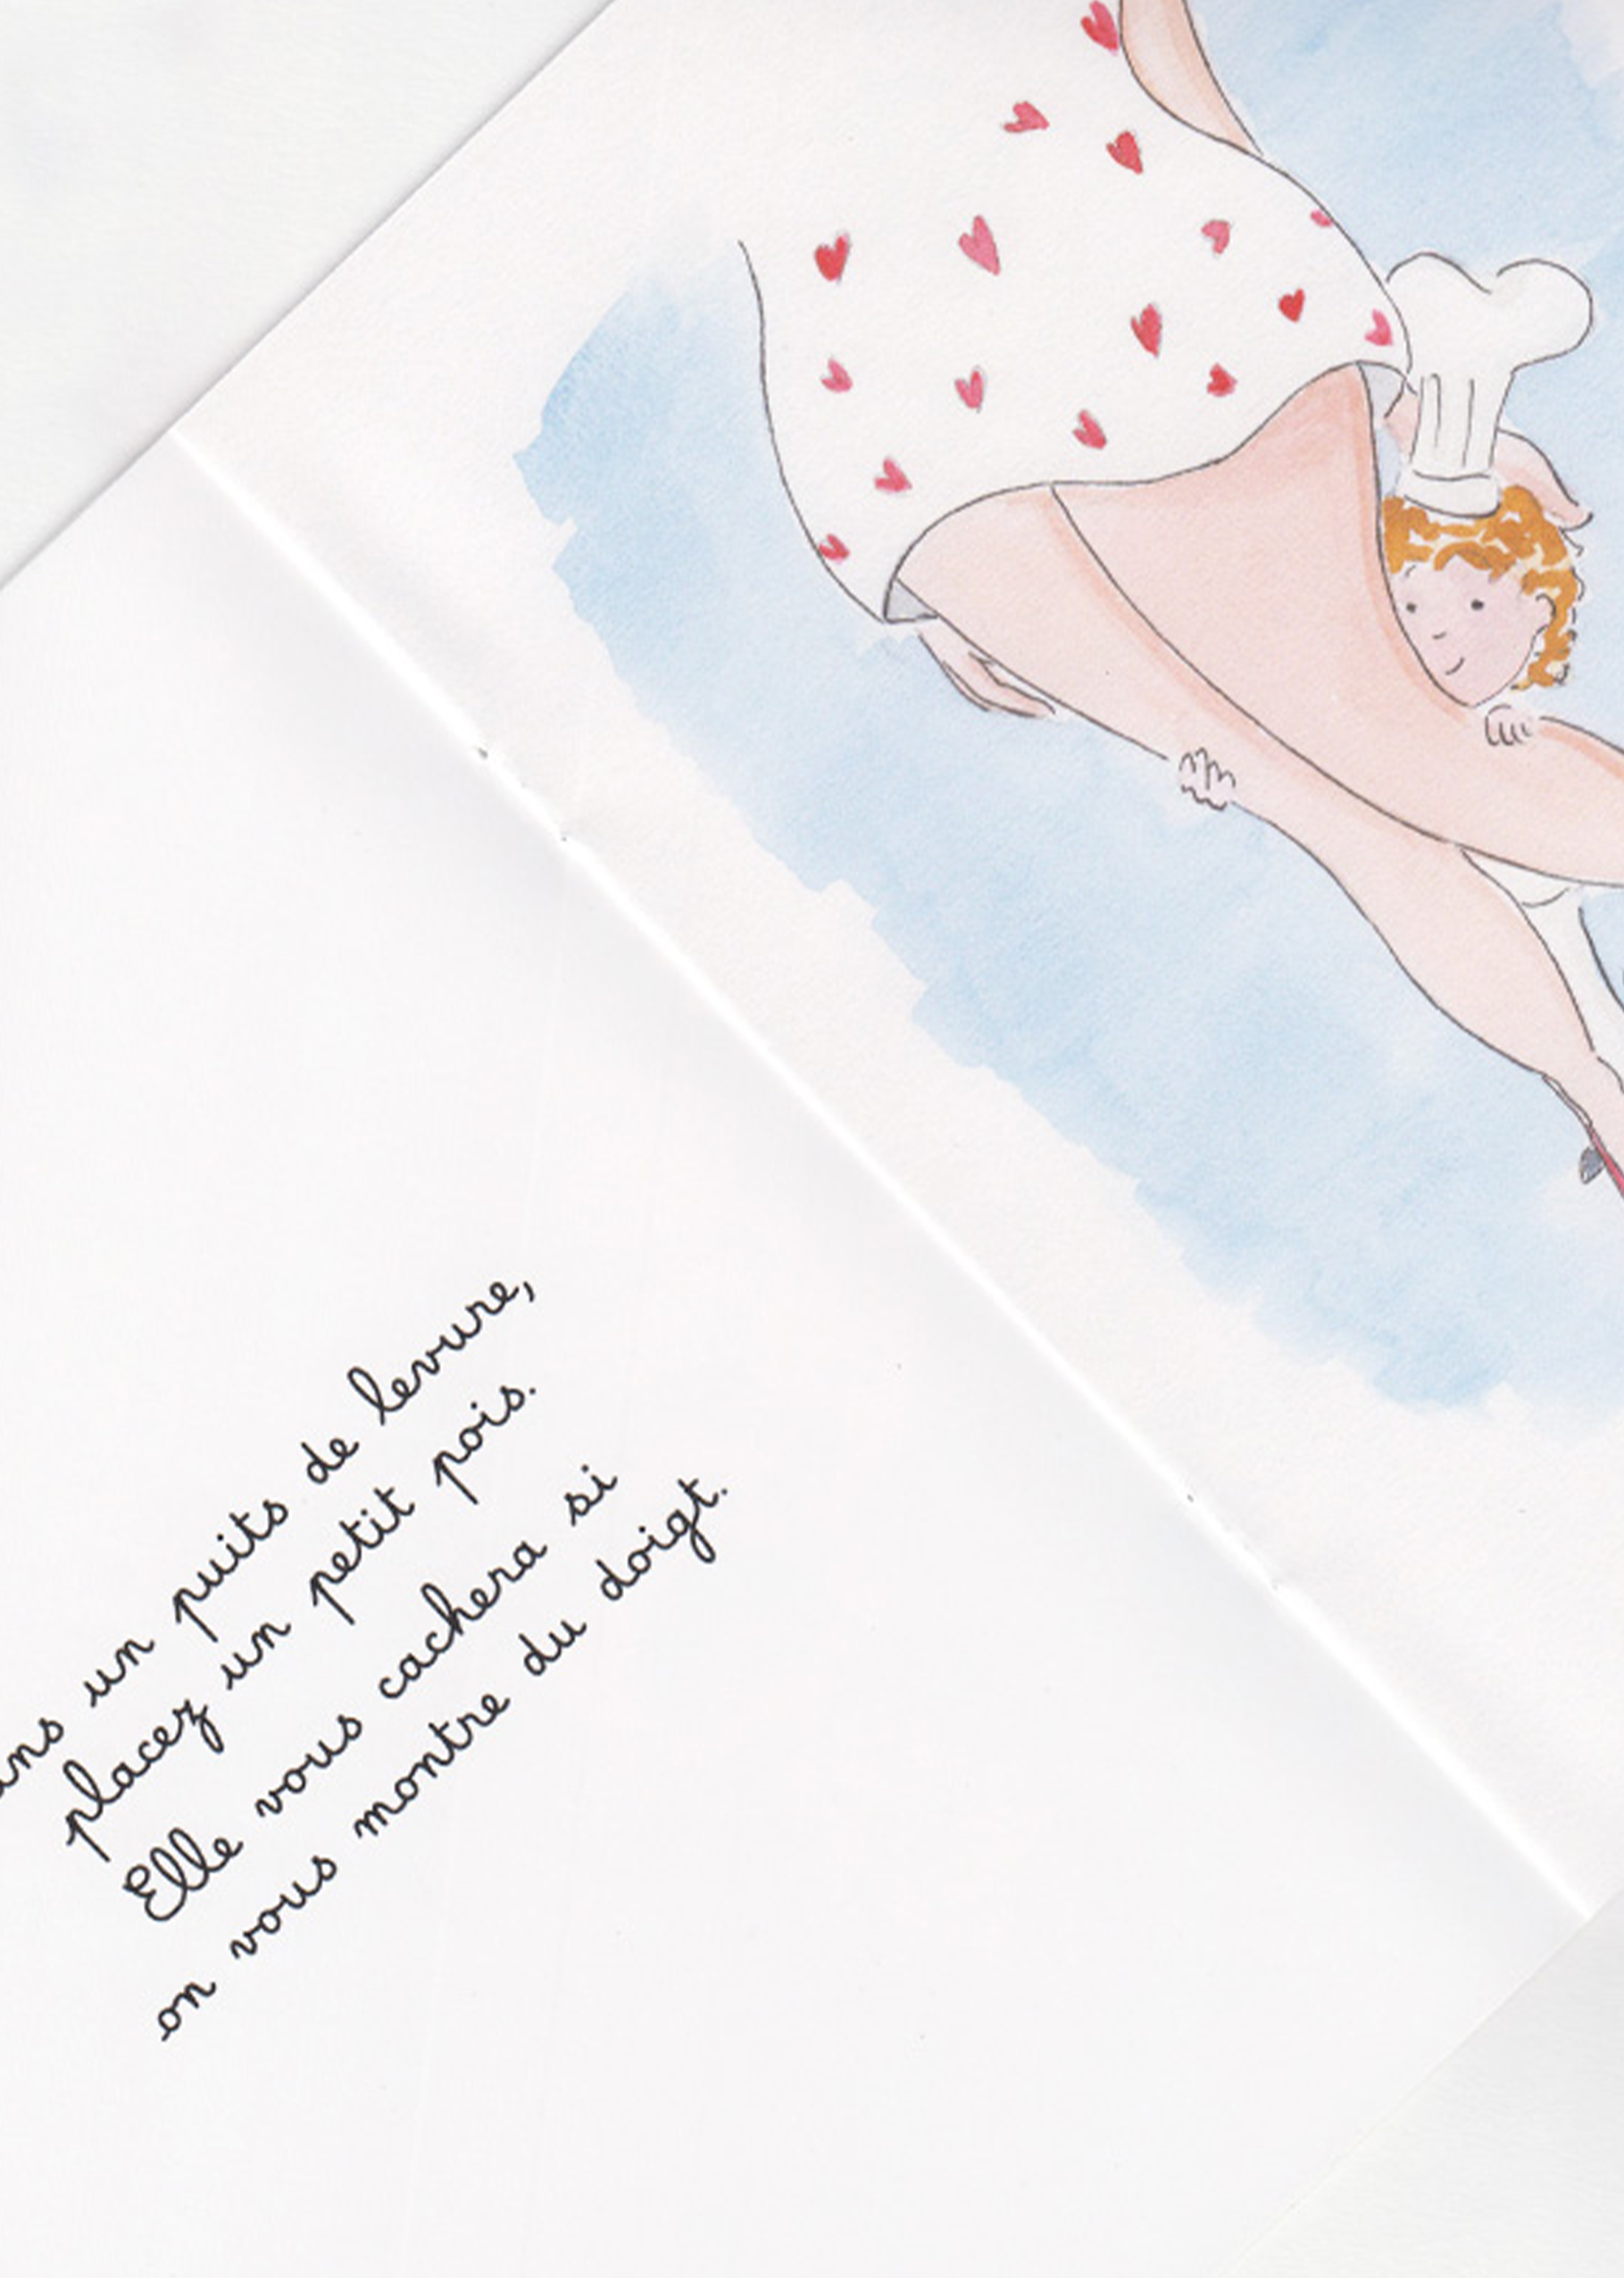 un puits de levure,
placez un petit pois.
Elle vous cachera si
on vous montre du doigt.